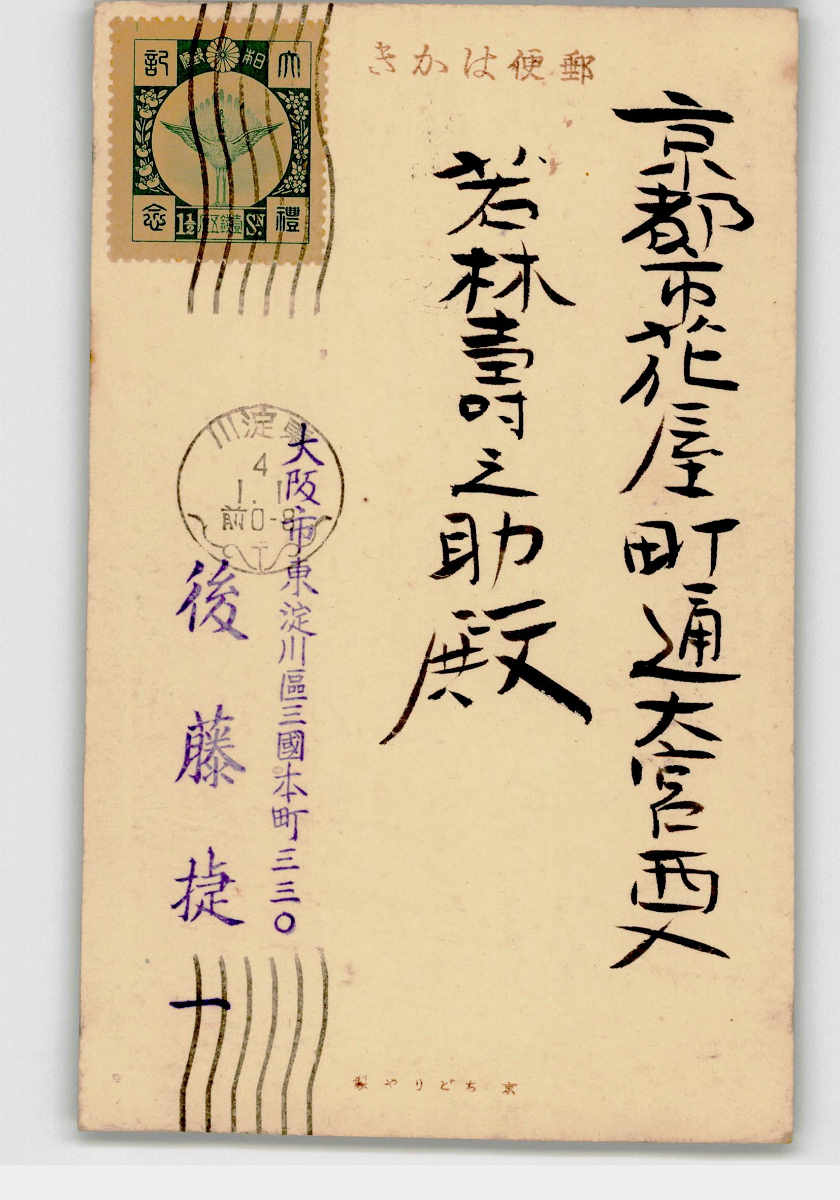 郵便はかき
京都市花屋町通大宮西入
若林壽之助殿
大禮記念
日本郵便
1½ Sn.
壹錢五厘
淀川
4
1. 1
前0-8
大阪市東淀川區三國本町三三〇
後藤捷一
京ちどりや製